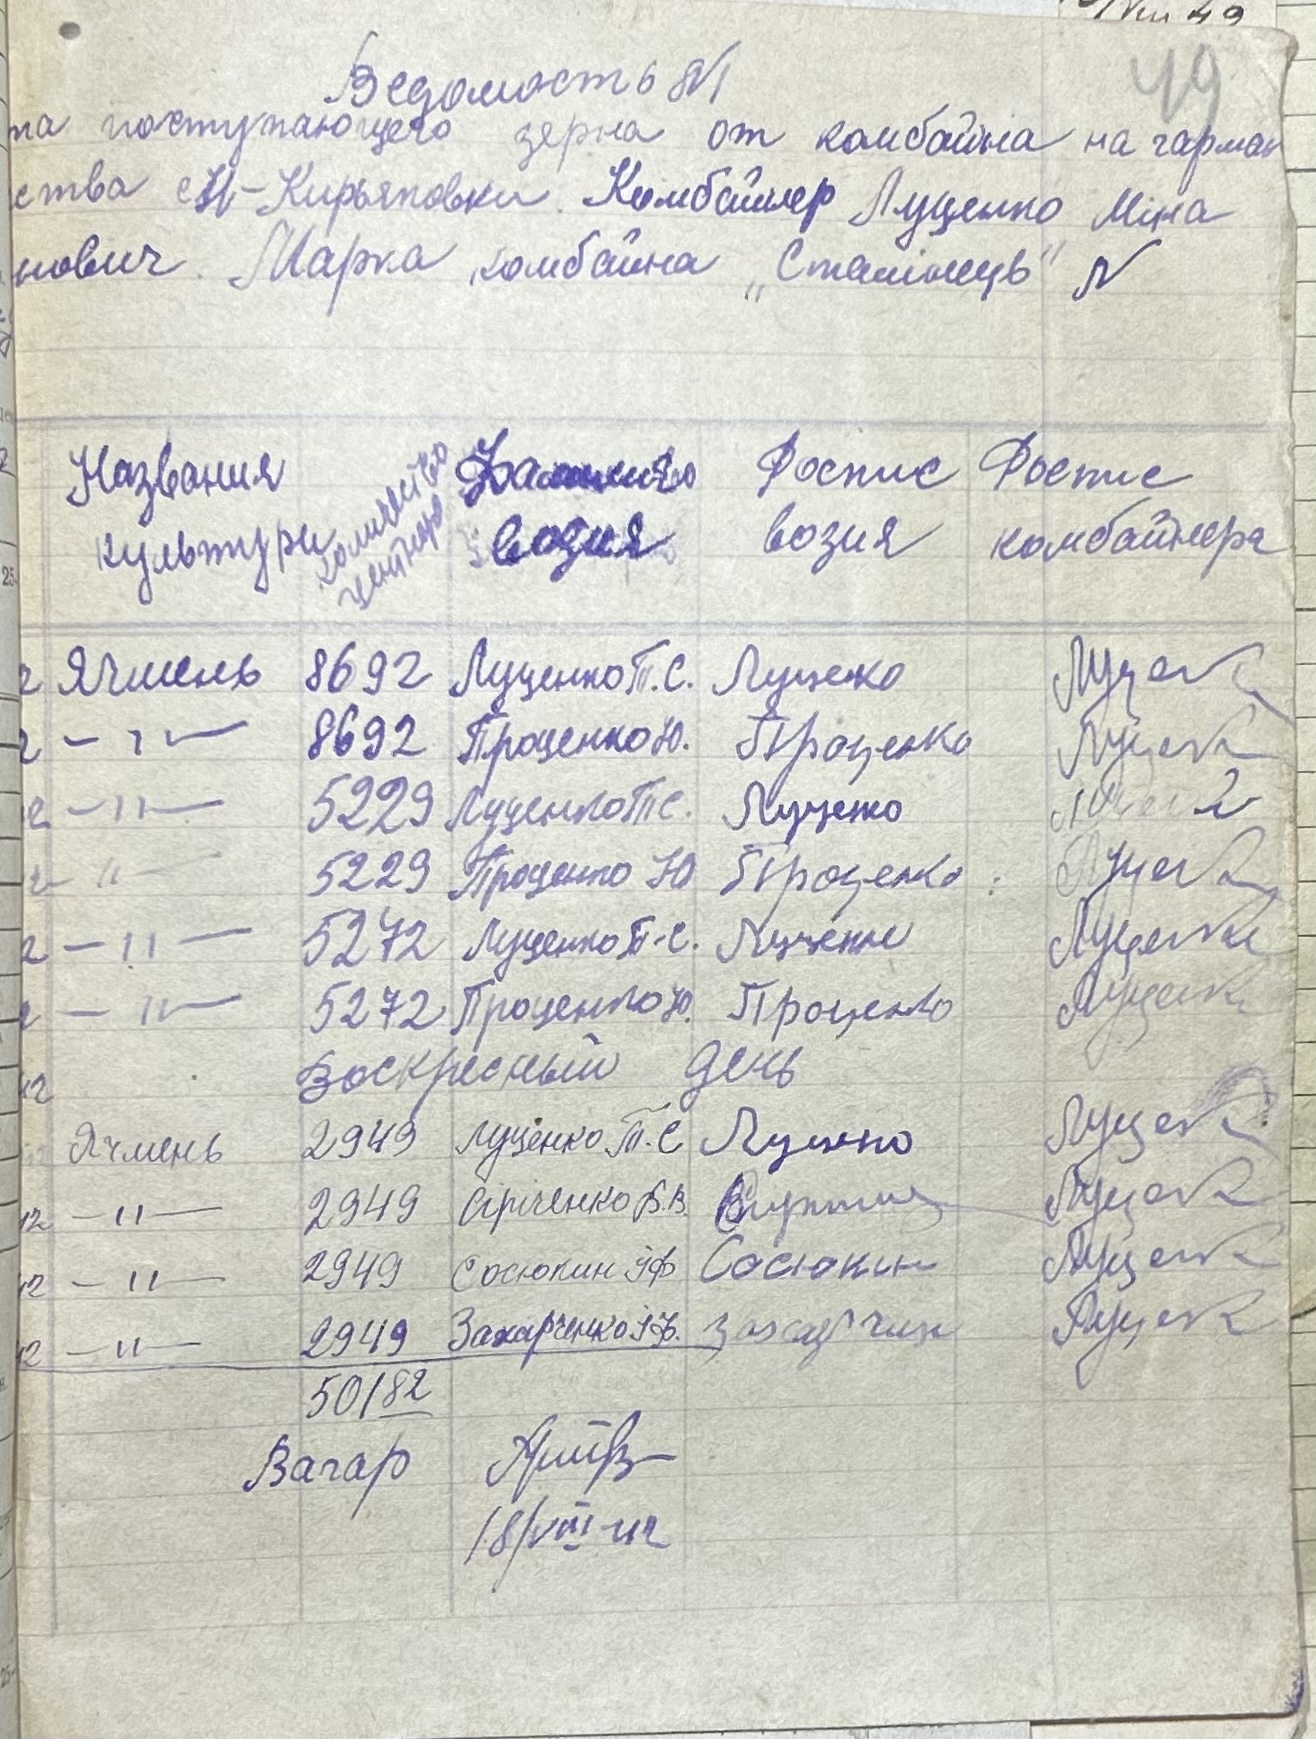 49
Ведомость №1
та поступающего зерна от комбайна на гарман
ства с Н-Кирьяповки. Комбайнер Луценко Міна
нович. Марка комбайна „Сталінець" N
Названия культури количество центнер Фамилия возия Роспис возия Роспис комбайнера
2 Ячмень 8692 Луценко Т.С. Луценко Луценк
2 — 〃 — 8692 Проценко Ю. Проценко Луценк
2 — 〃 — 5229 Луценко Т.С. Луценко
2 — 〃 — 5229 Проценко Ю Проценко Луценк
2 — 〃 — 5272 Луценко Т.С. Луценко Луценк
2 — 〃 — 5272 Проценко Ю. Проценко Луценк
42 Воскресный день
Ячмень 2949 Луценко Т.С Луценко Луценк
42 — 〃 — 2949 Сірченко В.В. Луценк
42 — 〃 — 2949 Сосюкин Ф Сосюкин Луценк
42 — 〃 — 2949 Захарченко Луценк
50182
Вагар
18/VIII-42